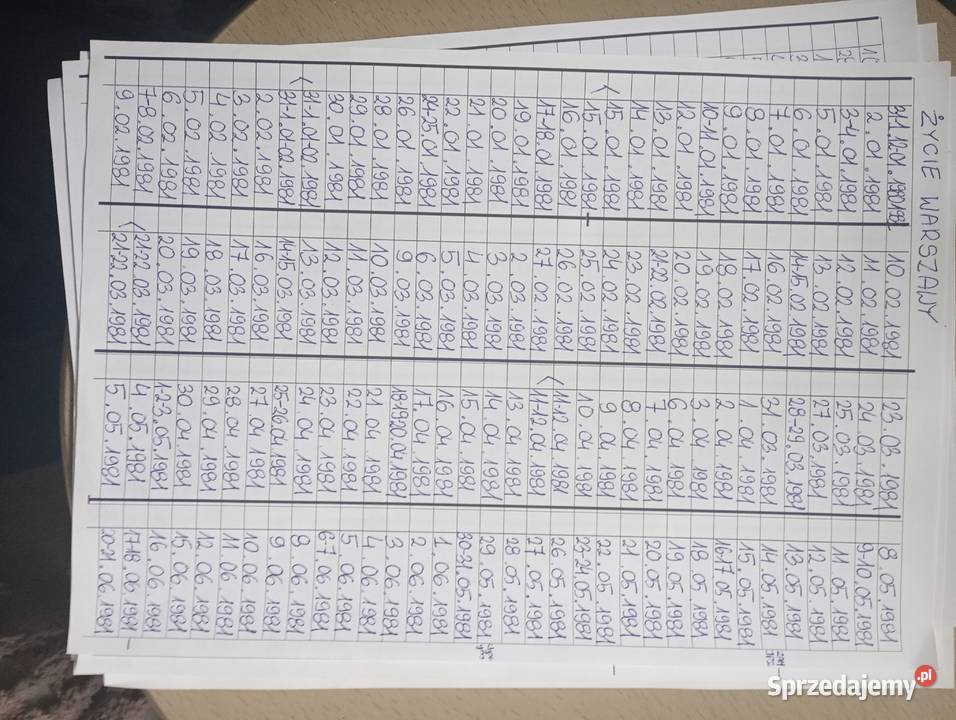 ŻYCIE WARSZAWY
2.01.1981
3-4.01.1981
5.01.1981
6.01.1981
7.01.1981
8.01.1981
9.01.1981
10-11.01.1981
12.01.1981
13.01.1981
14.01.1981
15.01.1981
15.01.1981
16.01.1981
17-18.01.1981
19.01.1981
20.01.1981
21.01.1981
22.01.1981
24-25.01.1981
26.01.1981
28.01.1981
29.01.1981
30.01.1981
31-1.01+02.1981
31-1.01+02.1981
2.02.1981
3.02.1981
4.02.1981
5.02.1981
6.02.1981
7-8.02.1981
9.02.1981
10.02.1981
11.02.1981
12.02.1981
13.02.1981
14-15.02.1981
16.02.1981
17.02.1981
18.02.1981
19.02.1981
20.02.1981
21-22.02.1981
23.02.1981
24.02.1981
25.02.1981
26.02.1981
27.02.1981
2.03.1981
3.03.1981
4.03.1981
5.03.1981
6.03.1981
9.03.1981
10.03.1981
11.03.1981
12.03.1981
13.03.1981
14-15.03.1981
16.03.1981
17.03.1981
18.03.1981
19.03.1981
20.03.1981
21-22.03.1981
21-22.03.1981
23.03.1981
24.03.1981
25.03.1981
27.03.1981
28-29.03.1981
31.03.1981
1.04.1981
2.04.1981
3.04.1981
6.04.1981
7.04.1981
8.04.1981
9.04.1981
10.04.1981
11-12.04.1981
11-12.04.1981
13.04.1981
14.04.1981
15.04.1981
16.04.1981
17.04.1981
18-19-20.04.1981
21.04.1981
22.04.1981
23.04.1981
24.04.1981
25-26.04.1981
27.04.1981
28.04.1981
29.04.1981
30.04.1981
1-2-3.05.1981
4.05.1981
5.05.1981
8.05.1981
9-10.05.1981
11.05.1981
12.05.1981
13.05.1981
14.05.1981
15.05.1981
16-17.05.1981
18.05.1981
19.05.1981
20.05.1981
21.05.1981
22.05.1981
23-24.05.1981
26.05.1981
27.05.1981
28.05.1981
29.05.1981
30-31.05.1981
1.06.1981
2.06.1981
3.06.1981
4.06.1981
5.06.1981
6-7.06.1981
8.06.1981
9.06.1981
10.06.1981
11.06.1981
12.06.1981
15.06.1981
16.06.1981
17-18.06.1981
20-21.06.1981
Sprzedajemy.pl